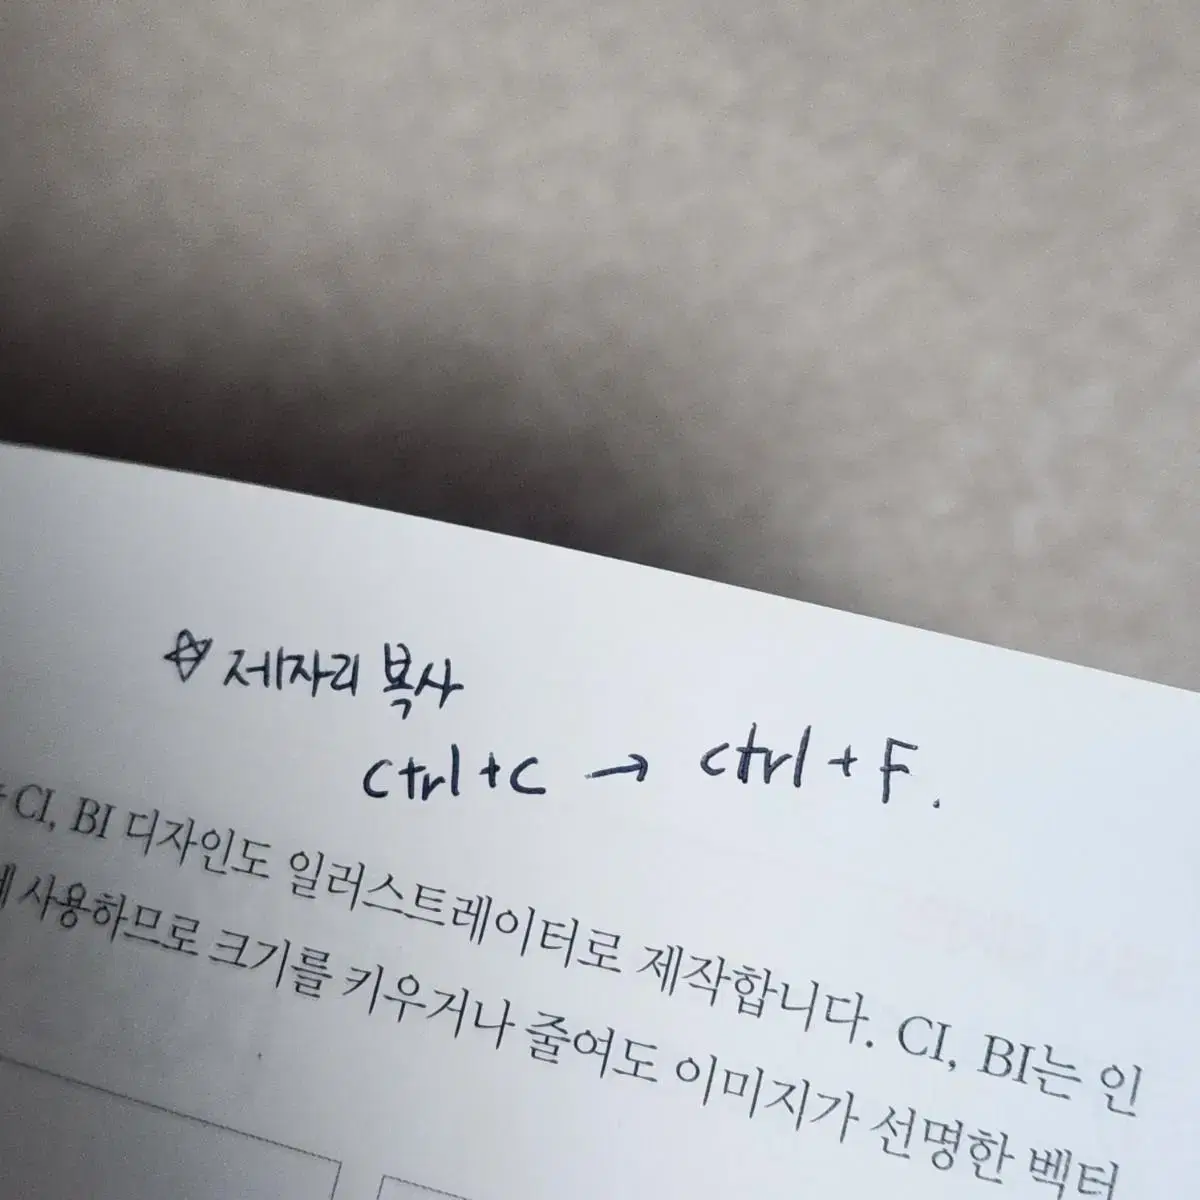 ☆ 제자리 복사
ctrl+c → ctrl+F.
CI, BI 디자인도 일러스트레이터로 제작합니다. CI, BI는 인
사용하므로 크기를 키우거나 줄여도 이미지가 선명한 벡터